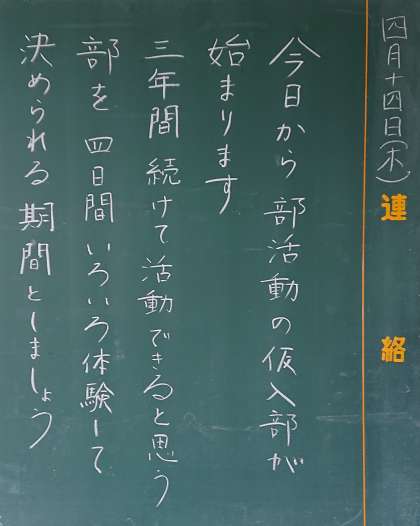 四月十四日(木)
連絡
今日から部活動の仮入部が
始まります
三年間続けて活動できると思う
部を四日間いろいろ体験して
決められる期間としましょう